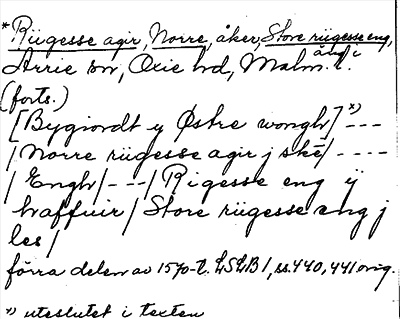 * Riigesse agir, Norre, åker, Store riigesse eng, äng i
Arrie sn, Oxie hd, Malm. l.
(forts.)
[Bygiordt y Østre wongh] *) ---
/ Norre riigesse agir j skē / ----
/ Engh / --- / Rigesse eng ij
haffuir / Store riigesse eng j
les /
förra delen av 1570-t. LSLB 1, ss. 440, 441 orig.
*) uteslutet i texten